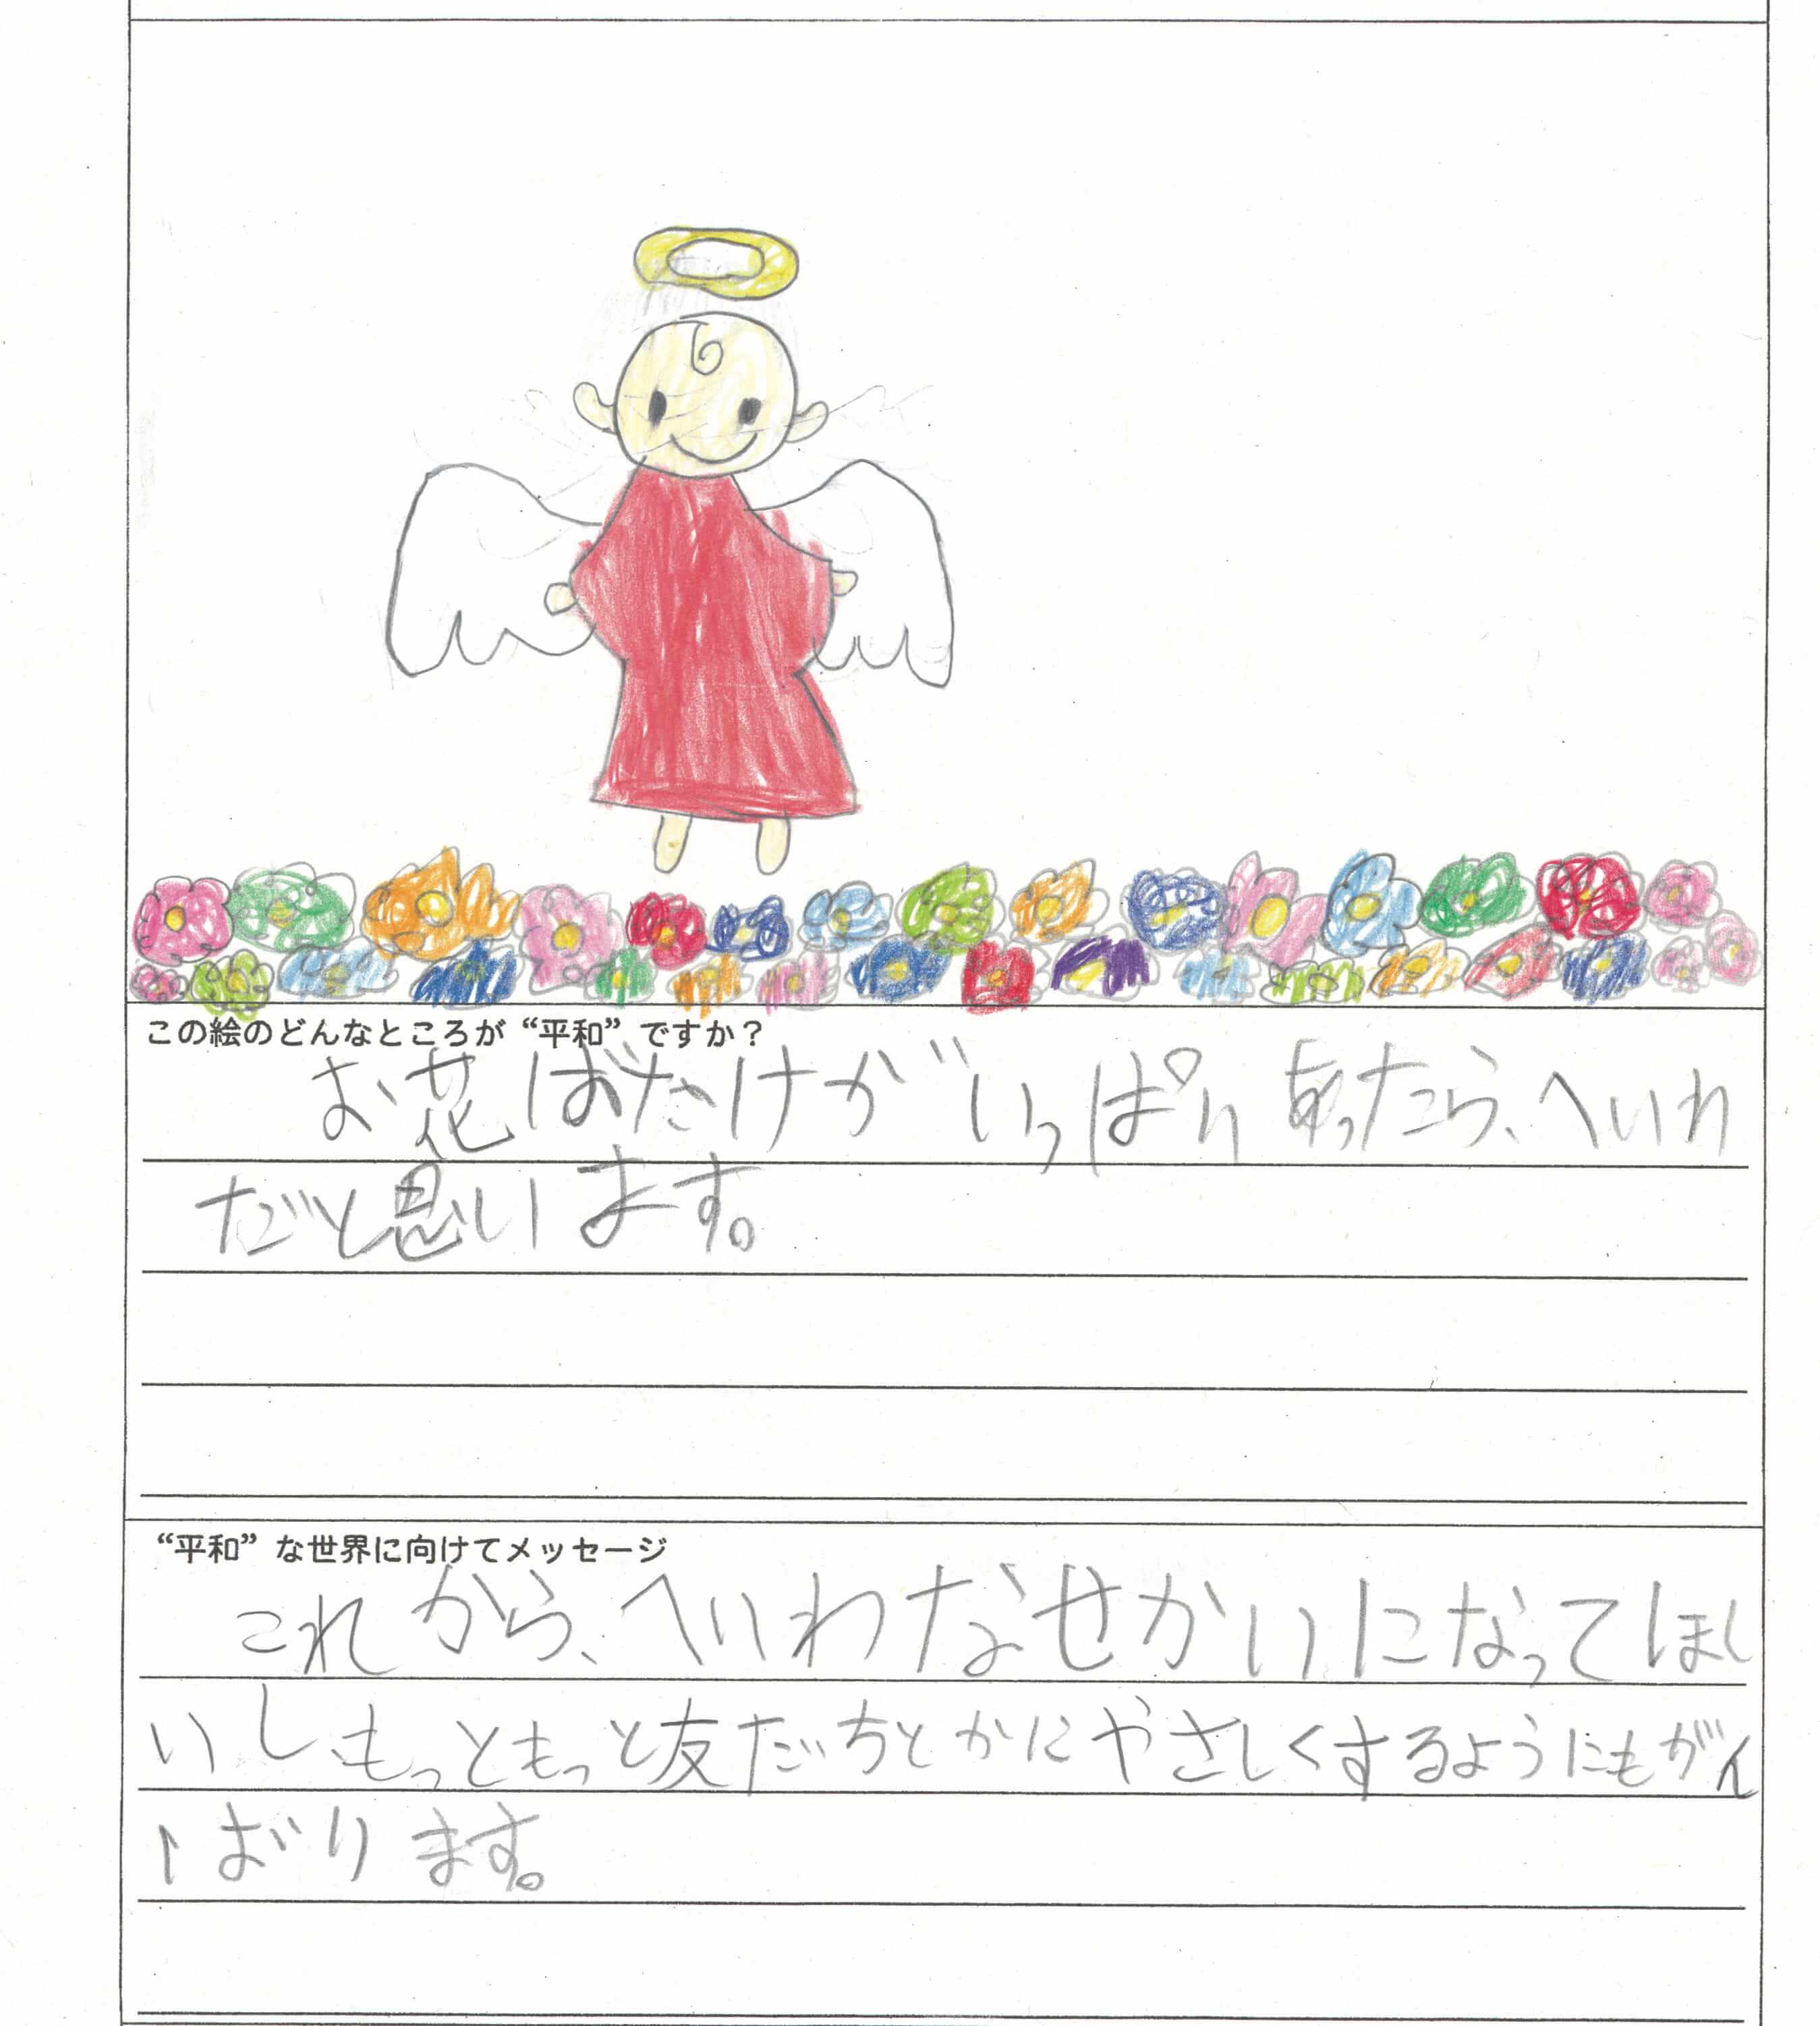 この絵のどんなところが“平和”ですか？
お花ばたけがいっぱいあったら、へいわ
だと思います。
“平和”な世界に向けてメッセージ
これから、へいわなせかいになってほし
いし、もっともっと友だちとかにやさしくするようにもがん
ばります。